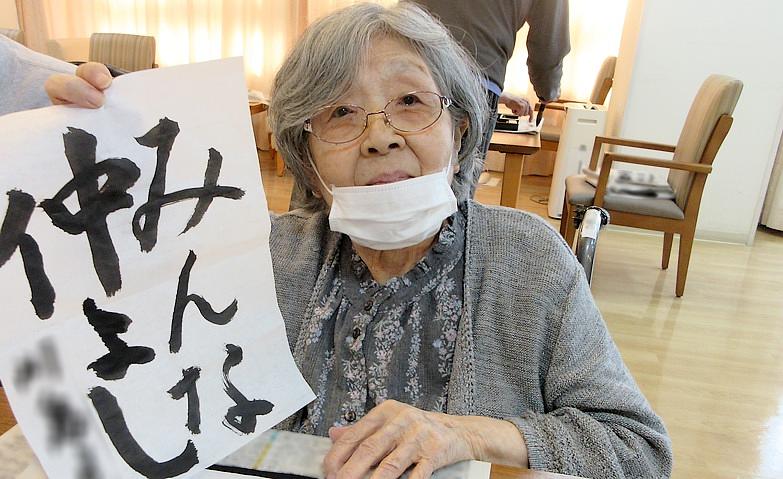 みんな
仲よし